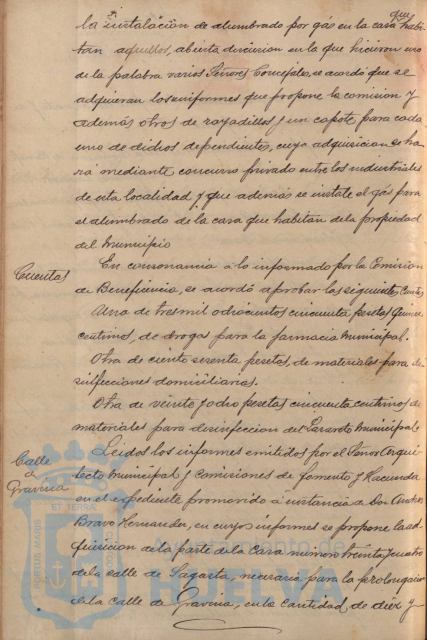 que
la instalación de alumbrado por gás en la casa habi-
tan aquellos, abierta discusion en la que hicieron uso
de la palabra varios Señores Concejales, se acordó que se
adquieran los uniformes que propone la comision y
ademas otros de rayadillos y un capote para cada
uno de dichos dependientes, cuya adquisicion se ha-
rá mediante concurso privado entre los industriales
de esta localidad y que ademas se instale el gás para
el alumbrado de la casa que habitan de la propiedad
del Municipio
Cuentas
En consonancia á lo informado por la Comision
de Beneficencia, se acordó aprobar las siguientes cuentas
Una de tres mil ochocientos cincuenta pesetas quince
centimos, de drogas para la farmacia Municipal.
Otra de ciento sesenta pesetas, de materiales para de-
sinfecciones domiciliarias.
Otra de veinte y ocho pesetas cincuenta centimos de
materiales para desinfeccion del Municipal
Calle
de
Gravina
Leidos los informes emitidos por el Señor Arqui-
tecto Municipal y Comisiones de fomento y Hacienda
en el expediente promovido á instancia de Don Andres
Bravo Hernandez, en cuyos informes se propone la ad-
quisicion de la parte de la Casa numero treinta y cuatro
de la calle de Sagasta, necesaria para la prolongacion
de la calle de Gravina, en la cantidad de diez y
Ayuntamiento de
HUELVA
PORTUS MARIS
ET TERRAE